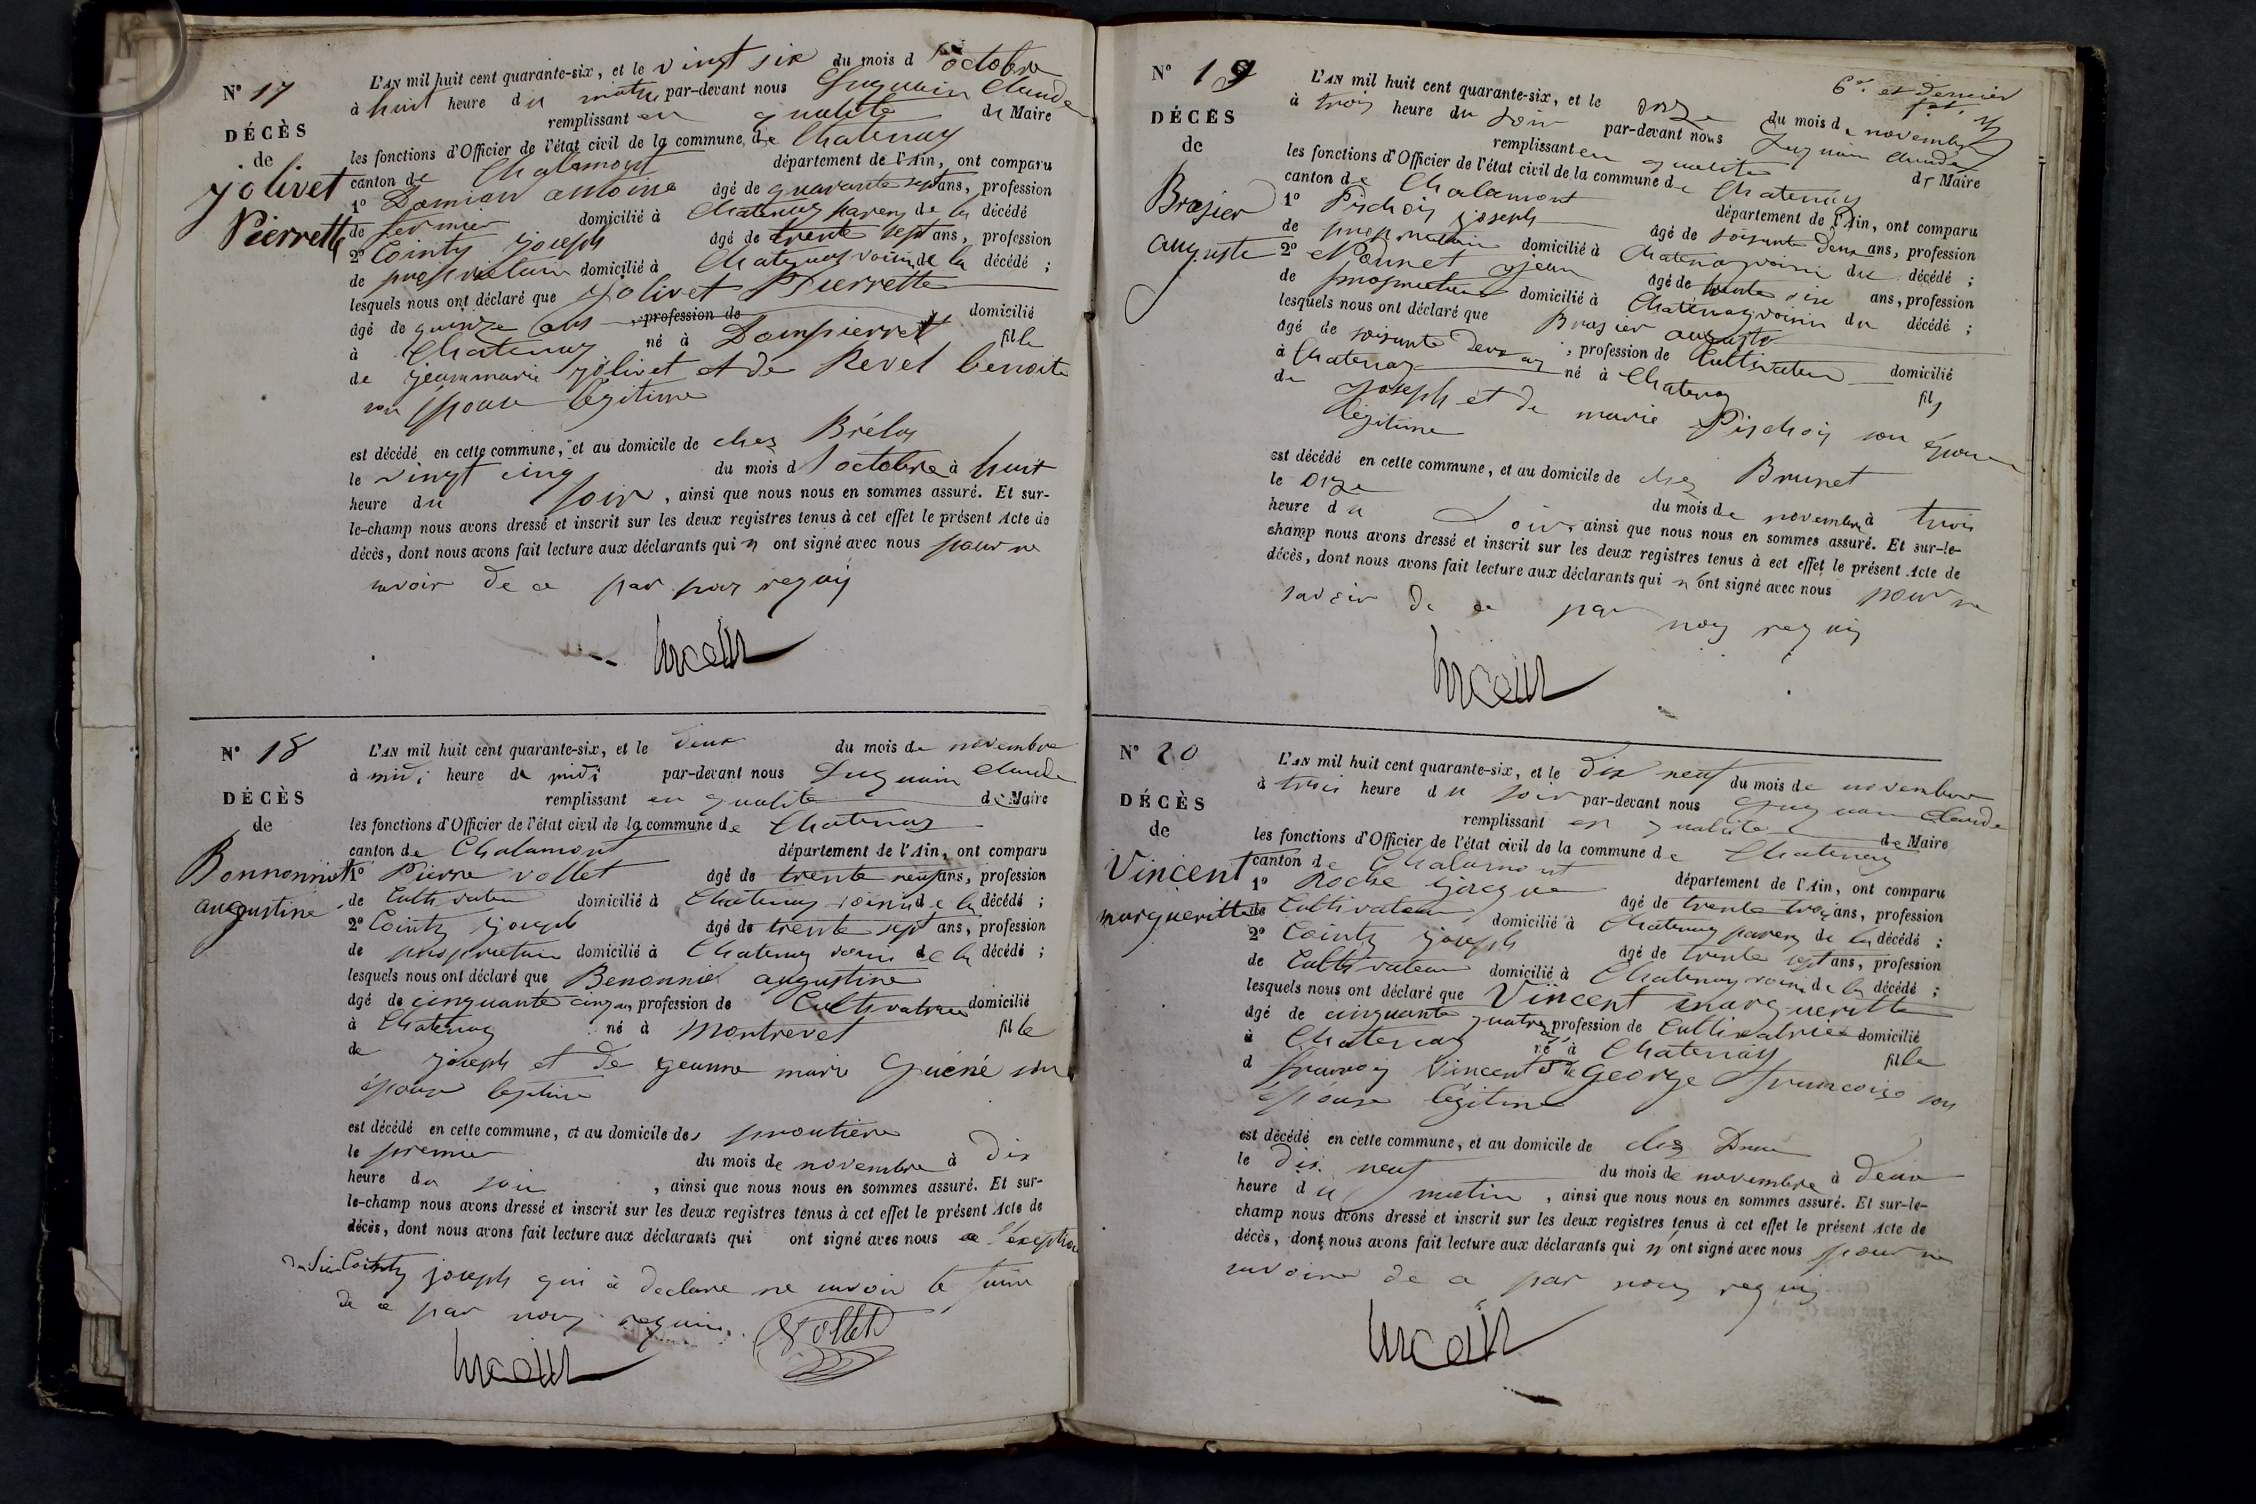 N° 17
DÉCÈS
de
jolivet
Pierrette
L'AN mil huit cent quarante-six, et le vingt six du mois d'octobre
à huit heure du matin par-devant nous Claude
remplissant en qualité de Maire
les fonctions d'Officier de l'état civil de la commune de Chatenay
canton de Chalamont département de l'Ain, ont comparu
1° Damian antoine âgé de quarante sept ans, profession
de fermier domicilié à Chatenay parens de la décédé
2° Cointy joseph âgé de trente sept ans, profession
de propriétaire domicilié à Chatenay voisin de la décédé ;
lesquels nous ont déclaré que jolivet Pierrette
âgé de quinze ans , profession de domicilié
à Chatenay né à Dompierre fille
de jeanmarie jolivet et de Revel benoite
son épouse légitime
est décédé en cette commune, et au domicile de chez Brélon
le vingt cinq du mois d'octobre à huit
heure du soir , ainsi que nous nous en sommes assuré. Et sur-
le-champ nous avons dressé et inscrit sur les deux registres tenus à cet effet le présent Acte de
décès, dont nous avons fait lecture aux déclarants qui n ont signé avec nous pour ne
savoir de ce par nous requis
N° 18
DÉCÈS
de
Bonnonniet
augustine
L'AN mil huit cent quarante-six, et le deux du mois de novembre
à midi heure de midi par-devant nous Claude
remplissant en qualité de Maire
les fonctions d'Officier de l'état civil de la commune de Chatenay
canton de Chalamont département de l'Ain, ont comparu
1° Pierre vollet âgé de trente neuf ans, profession
de Cultivateur domicilié à Chatenay voisin de la décédé ;
2° Cointy joseph âgé de trente sept ans, profession
de propriétaire domicilié à Chatenay voisin de la décédé ;
lesquels nous ont déclaré que Benonnié augustine
âgé de cinquante cinq ans profession de Cultivatrice domicilié
à Chatenay né à Montrevet fille
de joseph et de jeanne marie Guéné son
épouse légitime
est décédé en cette commune, et au domicile des proutière
le premier du mois de novembre à dix
heure du soir , ainsi que nous nous en sommes assuré. Et sur-
le-champ nous avons dressé et inscrit sur les deux registres tenus à cet effet le présent Acte de
décès, dont nous avons fait lecture aux déclarants qui ont signé avec nous a l'exception
du sieur Cointy joseph qui à declare ne savoir le faire
de ce par nous requis. Vollet
6e. et dernier
fet.
N° 19
DÉCÈS
de
Brasier
auguste
L'AN mil huit cent quarante-six, et le onze du mois de novembre
à trois heure du soir par-devant nous Claude
remplissant en qualité de Maire
les fonctions d'Officier de l'état civil de la commune de Chatenay
canton de Chalamont département de l'Ain, ont comparu
1° Pischois joseph âgé de soisante deux ans, profession
de propriétaire domicilié à Chatenay voisin du décédé ;
2° Nonnet jean âgé de trente six ans, profession
de propriétaire domicilié à Chatenay voisin du décédé ;
lesquels nous ont déclaré que Brasier auguste
âgé de soisante deux ans , profession de Cultivateur domicilié
à Chatenay né à Chatenay fils
de joseph et de marie Pischois son épouse
légitime
est décédé en cette commune, et au domicile de chez Brunet
le onze du mois de novembre à trois
heure du soir, ainsi que nous nous en sommes assuré. Et sur-le-
champ nous avons dressé et inscrit sur les deux registres tenus à cet effet le présent Acte de
décès, dont nous avons fait lecture aux déclarants qui n'ont signé avec nous pour ne
savoir de ce par nous requis
N° 20
DÉCÈS
de
Vincent
margueritte
L'AN mil huit cent quarante-six, et le dix neuf du mois de novembre
à trois heure du soir par-devant nous Claude
remplissant en qualité de Maire
les fonctions d'Officier de l'état civil de la commune de Chatenay
canton de Chalamont département de l'Ain, ont comparu
1° Roche jacque âgé de trente trois ans, profession
de Cultivateur domicilié à Chatenay parens de la décédé ;
2° Cointy joseph âgé de trente sept ans, profession
de Cultivateur domicilié à Chatenay voisin de la décédé ;
lesquels nous ont déclaré que Vincent margueritte
âgé de cinquante quatre profession de Cultivatrice domicilié
à Chatenay né à Chatenay fille
d francois Vincent & de George francoise son
épouse légitime
est décédé en cette commune, et au domicile de chez
le dix neuf du mois de novembre à deux
heure du matin , ainsi que nous nous en sommes assuré. Et sur-le-
champ nous avons dressé et inscrit sur les deux registres tenus à cet effet le présent Acte de
décès, dont nous avons fait lecture aux déclarants qui n'ont signé avec nous pour ne
savoire de ce par nous requis